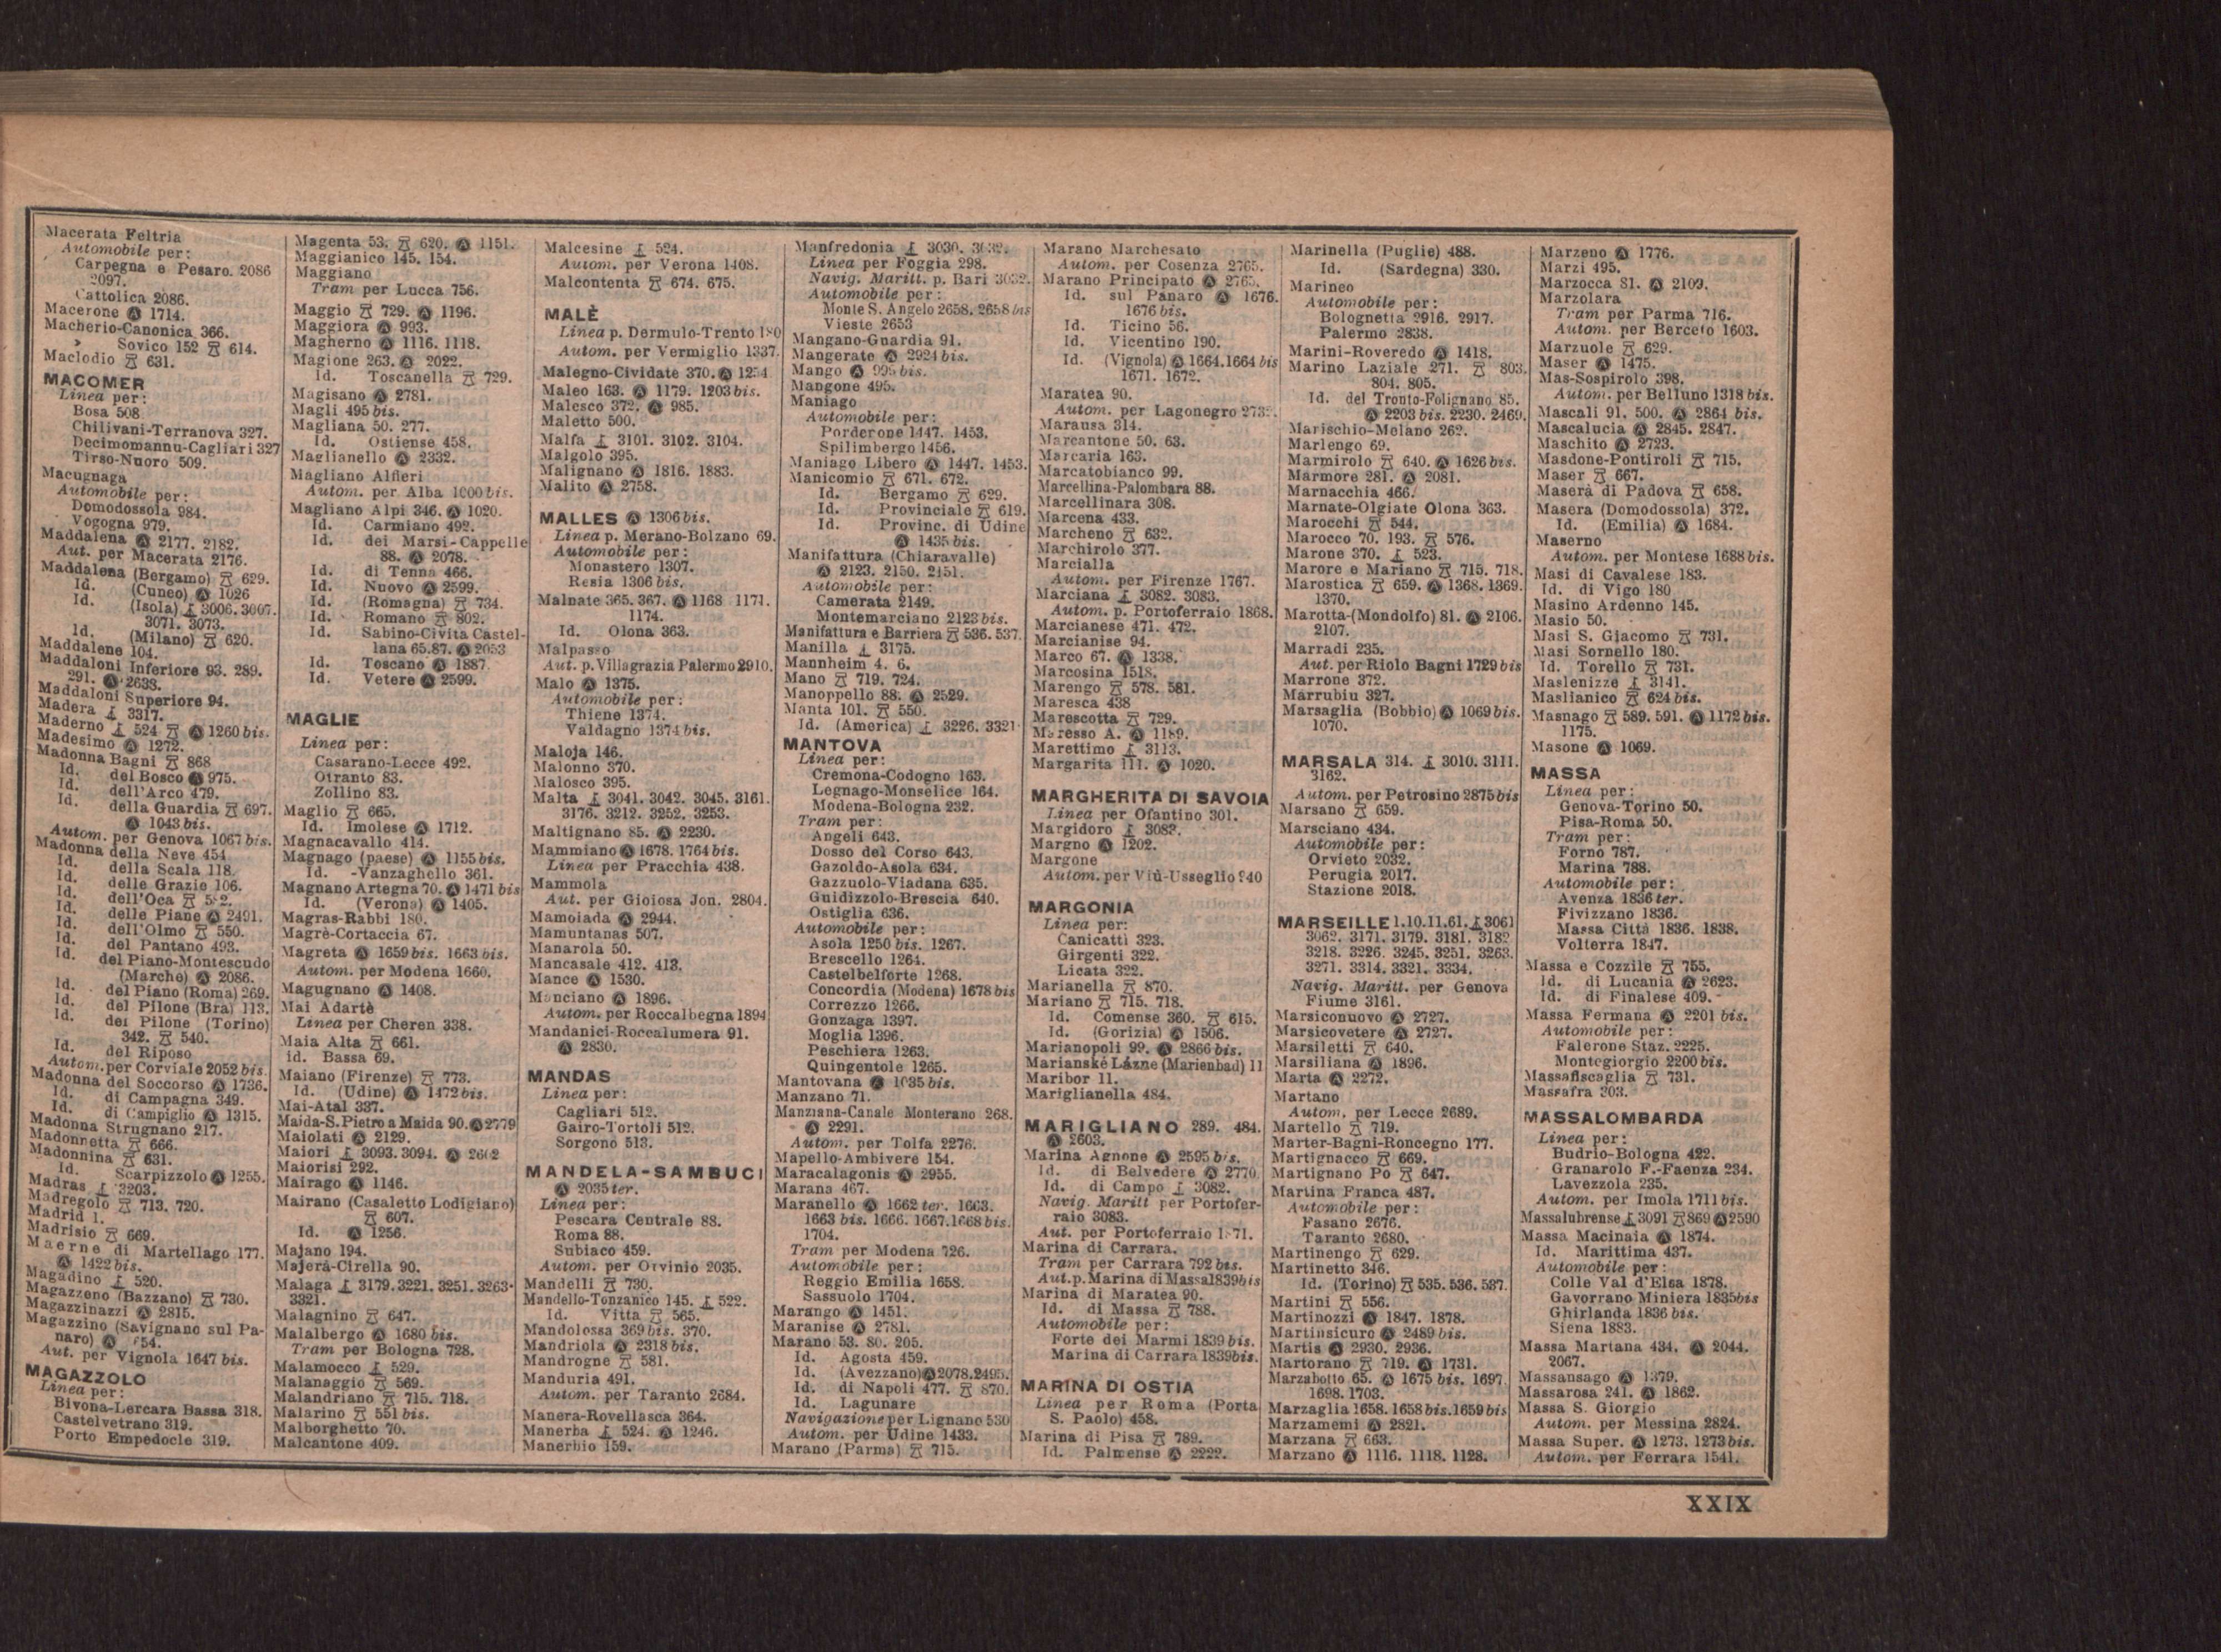 Macerata Feltria
Automobile per:
Carpegna e Pesaro. 2086
2097.
Cattolica 2086.
Macerone Ⓐ 1714.
Macherio-Canonica 366.
› Sovico 152 614.
Maclodio 631.
MACOMER
Linea per:
Bosa 508
Chilivani-Terranova 327.
Decimomannu-Cagliari 327
Tirso-Nuoro 509.
Macugnaga
Automobile per:
Domodossola 984.
Vogogna 979.
Maddalena Ⓐ 2177. 2182.
Aut. per Macerata 2176.
Maddalena (Bergamo) 629.
Id. (Cuneo) Ⓐ 1026
Id. (Isola) 3006. 3007.
3071. 3073.
Id. (Milano) 620.
Maddalene 104.
Maddaloni Inferiore 93. 289.
291. Ⓐ 2638.
Maddaloni Superiore 94.
Madera 3317.
Maderno 524 Ⓐ 1260 bis.
Madesimo Ⓐ 1272.
Madonna Bagni 868
Id. del Bosco Ⓐ 975.
Id. dell'Arco 479.
Id. della Guardia 697.
Ⓐ 1043 bis.
Autom. per Genova 1067 bis.
Madonna della Neve 454
Id. della Scala 118
Id. delle Grazie 106.
Id. dell'Oca
Id. delle Piane Ⓐ 2491.
Id. dell'Olmo 550.
Id. del Pantano 493.
Id. del Piano-Montescudo
(Marche) Ⓐ 2086.
Id. del Piano (Roma) 269.
Id. del Pilone (Bra) 113.
Id. del Pilone (Torino)
342. 540.
Id. del Riposo
Autom. per Corviale 2052 bis.
Madonna del Soccorso Ⓐ 1736.
Id. di Campagna 349.
Id. di Campiglio Ⓐ 1315.
Madonna Strugnano 217.
Madonnetta 666.
Madonnina 631.
Id. Scarpizzolo Ⓐ 1255.
Madras 3203.
Madregolo 713. 720.
Madrid 1.
Madrisio 669.
Maerne di Martellago 177.
Ⓐ 1422 bis.
Magadino 520.
Magazzeno (Bazzano) 730.
Magazzinazzi Ⓐ 2815.
Magazzino (Savignano sul Pa-
naro) Ⓐ
Aut. per Vignola 1647 bis.
MAGAZZOLO
Linea per:
Bivona-Lercara Bassa 318.
Castelvetrano 319.
Porto Empedocle 319.
Magenta 53. 620. Ⓐ 1151.
Maggianico 145. 154.
Maggiano
Tram per Lucca 756.
Maggio 729. Ⓐ 1196.
Maggiora Ⓐ 993.
Magherno Ⓐ 1116. 1118.
Magione 263. Ⓐ 2022.
Id. Toscanella 729.
Magisano Ⓐ 2781.
Magli 495 bis.
Magliana 50. 277.
Id. Ostiense 458.
Maglianello Ⓐ 2332.
Magliano Alfieri
Autom. per Alba 1000 bis.
Magliano Alpi 346. Ⓐ 1020.
Id. Carmiano 492.
Id. dei Marsi-Cappelle
88. Ⓐ 2078.
Id. di Tenna 466.
Id. Nuovo Ⓐ 2599.
Id. (Romagna) 734.
Id. Romano 802.
Id. Sabino-Civita Castel-
lana 65.87. Ⓐ 2053
Id. Toscano Ⓐ 1887
Id. Vetere Ⓐ 2599.
MAGLIE
Linea per:
Casarano-Lecce 492.
Otranto 83.
Zollino 83.
Maglio 665.
Id. Imolese Ⓐ 1712.
Magnacavallo 414.
Magnago (paese) Ⓐ 1155 bis.
Id. -Vanzaghello 361.
Magnano Artegna 70. Ⓐ 1471 bis
Id. (Verona) Ⓐ 1405.
Magras-Rabbi 180.
Magrè-Cortaccia 67.
Magreta Ⓐ 1659 bis. 1663 bis.
Autom. per Modena 1660.
Magugnano Ⓐ 1408.
Mai Adartè
Linea per Cheren 338.
Maia Alta 661.
id. Bassa 69.
Maiano (Firenze) 773.
Id. (Udine) Ⓐ 1472 bis.
Mai-Atal 337.
Maida-S. Pietro a Maida 90. Ⓐ 2779
Maiolati Ⓐ 2129.
Maiori 3093. 3094. Ⓐ 2602
Maiorisi 292.
Mairago Ⓐ 1146.
Mairano (Casaletto Lodigiano)
607.
Id. Ⓐ 1256.
Majano 194.
Majerà-Cirella 90.
Malaga 3179. 3221. 3251. 3263.
3321.
Malagnino 647.
Malalbergo Ⓐ 1680 bis.
Tram per Bologna 728.
Malamocco 529.
Malanaggio 569.
Malandriano 715. 718.
Malarino 551 bis.
Malborghetto 70.
Malcantone 409.
Malcesine 524.
Autom. per Verona 1408.
Malcontenta 674. 675.
MALÈ
Linea p. Dermulo-Trento 180
Autom. per Vermiglio 1337.
Malegno-Cividate 370. Ⓐ 1254
Maleo 163. Ⓐ 1179. 1203 bis.
Malesco 372. Ⓐ 985.
Maletto 500.
Malfa 3101. 3102. 3104.
Malgolo 395.
Malignano Ⓐ 1816. 1883.
Malito Ⓐ 2758.
MALLES Ⓐ 1306 bis.
Linea p. Merano-Bolzano 69.
Automobile per:
Monastero 1307.
Resia 1306 bis.
Malnate 365. 367. Ⓐ 1168 1171.
1174.
Id. Olona 363.
Malpasso
Aut. p. Villagrazia Palermo 2910.
Malo Ⓐ 1375.
Automobile per:
Thiene 1374.
Valdagno 1374 bis.
Maloja 146.
Malonno 370.
Malosco 395.
Malta 3041. 3042. 3045. 3161.
3176. 3212. 3252. 3253.
Maltignano 85. Ⓐ 2230.
Mammiano Ⓐ 1678. 1764 bis.
Linea per Pracchia 438.
Mammola
Aut. per Gioiosa Jon. 2804.
Mamoiada Ⓐ 2944.
Mamuntanas 507.
Manarola 50.
Mancasale 412. 413.
Mance Ⓐ 1530.
Manciano Ⓐ 1896.
Autom. per Roccalbegna 1894
Mandanici-Roccalumera 91.
Ⓐ 2830.
MANDAS
Linea per:
Cagliari 512.
Gairo-Tortoli 512.
Sorgono 513.
MANDELA-SAMBUCI
Ⓐ 2035 ter.
Linea per:
Pescara Centrale 88.
Roma 88.
Subiaco 459.
Autom. per Orvinio 2035.
Mandelli 730.
Mandello-Tonzanico 145. 522.
Id. Vitta 565.
Mandolossa 369 bis. 370.
Mandriola Ⓐ 2318 bis.
Mandrogne 581.
Manduria 491.
Autom. per Taranto 2684.
Manera-Rovellasca 364.
Manerba 524. Ⓐ 1246.
Manerbio 159.
Manfredonia 3030. 3032.
Linea per Foggia 298.
Navig. Maritt. p. Bari 3032.
Automobile per:
Monte S. Angelo 2658. 2658 bis
Vieste 2653
Mangano-Guardia 91.
Mangerate Ⓐ 2924 bis.
Mango Ⓐ 995 bis.
Mangone 495.
Maniago
Automobile per:
Porderone 1447. 1453.
Spilimbergo 1456.
Maniago Libero Ⓐ 1447. 1453.
Manicomio 671. 672.
Id. Bergamo 629.
Id. Provinciale 619.
Id. Provinc. di Udine
Ⓐ 1435 bis.
Manifattura (Chiaravalle)
Ⓐ 2123. 2150. 2151.
Automobile per:
Camerata 2149.
Montemarciano 2123 bis.
Manifattura e Barriera 536. 537.
Manilla 3175.
Mannheim 4. 6.
Mano 719. 724.
Manoppello 88. Ⓐ 2529.
Manta 101. 550.
Id. (America) 3226. 3321
MANTOVA
Linea per:
Cremona-Codogno 163.
Legnago-Monselice 164.
Modena-Bologna 232.
Tram per:
Angeli 643.
Dosso del Corso 643.
Gazoldo-Asola 634.
Gazzuolo-Viadana 635.
Guidizzolo-Brescia 640.
Ostiglia 636.
Automobile per:
Asola 1250 bis. 1267.
Brescello 1264.
Castelbelforte 1268.
Concordia (Modena) 1678 bis
Correzzo 1266.
Gonzaga 1397.
Moglia 1396.
Peschiera 1263.
Quingentole 1265.
Mantovana Ⓐ 1035 bis.
Manzano 71.
Manziana-Canale Monterano 268.
Ⓐ 2291.
Autom. per Tolfa 2276.
Mapello-Ambivere 154.
Maracalagonis Ⓐ 2955.
Marana 467.
Maranello Ⓐ 1662 ter. 1663.
1663 bis. 1666. 1667. 1668 bis.
1704.
Tram per Modena 726.
Automobile per:
Reggio Emilia 1658.
Sassuolo 1704.
Marango Ⓐ 1451.
Maranise Ⓐ 2781.
Marano 53. 80. 205.
Id. Agosta 459.
Id. (Avezzano) Ⓐ 2078. 2495.
Id. di Napoli 477. 870.
Id. Lagunare
Navigazione per Lignano 530
Autom. per Udine 1433.
Marano (Parma) 715.
Marano Marchesato
Autom. per Cosenza 2765.
Marano Principato Ⓐ 2765.
Id. sul Panaro Ⓐ 1676.
1676 bis.
Id. Ticino 56.
Id. Vicentino 190.
Id. (Vignola) Ⓐ 1664. 1664 bis
1671. 1672.
Maratea 90.
Autom. per Lagonegro
Marausa 314.
Marcantone 50. 63.
Marcaria 163.
Marcatobianco 99.
Marcellina-Palombara 88.
Marcellinara 308.
Marcena 433.
Marcheno 632.
Marchirolo 377.
Marcialla
Autom. per Firenze 1767.
Marciana 3082. 3083.
Autom. p. Portoferraio 1868.
Marcianese 471. 472.
Marcianise 94.
Marco 67. Ⓐ 1338.
Marcosina 1518.
Marengo 578. 581.
Maresca 438
Marescotta 729.
Maresso A. Ⓐ 1189.
Marettimo 3113.
Margarita 111. Ⓐ 1020.
MARGHERITA DI SAVOIA
Linea per Ofantino 301.
Margidoro 3082.
Margno Ⓐ 1202.
Margone
Autom. per Viù-Usseglio 940
MARGONIA
Linea per:
Canicattì 323.
Girgenti 322.
Licata 322.
Marianella 870.
Mariano 715. 718.
Id. Comense 360. 615.
Id. (Gorizia) Ⓐ 1506.
Marianopoli 99. Ⓐ 2866 bis.
Marianské Lázne (Marienbad) 11
Maribor 11.
Mariglianella 484.
MARIGLIANO 289. 484.
Ⓐ 2603.
Marina Agnone Ⓐ 2595 bis.
Id. di Belvedere Ⓐ 2770
Id. di Campo 3082.
Navig. Maritt per Portofer-
raio 3083.
Aut. per Portoferraio 1871.
Marina di Carrara.
Tram per Carrara 792 bis.
Aut. p. Marina di Massa 1839 bis
Marina di Maratea 90.
Id. di Massa 788.
Automobile per:
Forte dei Marmi 1839 bis.
Marina di Carrara 1839 bis.
MARINA DI OSTIA
Linea per Roma (Porta
S. Paolo) 458.
Marina di Pisa 789.
Id. Palmense Ⓐ 2222.
Marinella (Puglie) 488.
Id. (Sardegna) 330.
Marineo
Automobile per:
Bolognetta 2916. 2917.
Palermo 2838.
Marini-Roveredo Ⓐ 1418.
Marino Laziale 271. 803.
804. 805.
Id. del Tronto-Folignano 85.
Ⓐ 2203 bis. 2230. 2469.
Marischio-Melano 262.
Marlengo 69.
Marmirolo 640. Ⓐ 1626 bis.
Marmore 281. Ⓐ 2081.
Marnacchia 466.
Marnate-Olgiate Olona 363.
Marocchi 544.
Marocco 70. 193. 576.
Marone 370. 523.
Marore e Mariano 715. 718.
Marostica 659. Ⓐ 1368. 1369.
1370.
Marotta-(Mondolfo) 81. Ⓐ 2106.
2107.
Marradi 235.
Aut. per Riolo Bagni 1729 bis
Marrone 372.
Marrubiu 327.
Marsaglia (Bobbio) Ⓐ 1069 bis.
1070.
MARSALA 314. 3010. 3111.
3162.
Autom. per Petrosino 2875 bis
Marsano 659.
Marsciano 434.
Automobile per:
Orvieto 2032.
Perugia 2017.
Stazione 2018.
MARSEILLE 1. 10. 11. 61. 3061
3062. 3171. 3179. 3181. 3182
3218. 3226. 3245. 3251. 3263.
3271. 3314. 3321. 3334.
Navig. Maritt. per Genova
Fiume 3161.
Marsiconuovo Ⓐ 2727.
Marsicovetere Ⓐ 2727.
Marsiletti 640.
Marsiliana Ⓐ 1896.
Marta Ⓐ 2272.
Martano
Autom. per Lecce 2689.
Martello 719.
Marter-Bagni-Roncegno 177.
Martignacco 669.
Martignano Po 647.
Martina Franca 487.
Automobile per:
Fasano 2676.
Taranto 2680.
Martinengo 629.
Martinetto 346.
Id. (Torino) 535. 536. 537.
Martini 556.
Martinozzi Ⓐ 1847. 1878.
Martinsicuro Ⓐ 2489 bis.
Martis Ⓐ 2930. 2936.
Martorano 719. Ⓐ 1731.
Marzabotto 65. Ⓐ 1675 bis. 1697
1698. 1703.
Marzaglia 1658. 1658 bis. 1659 bis
Marzamemi Ⓐ 2821.
Marzana 663.
Marzano Ⓐ 1116. 1118. 1128.
Marzeno Ⓐ 1776.
Marzi 495.
Marzocca 81. Ⓐ 2109.
Marzolara
Tram per Parma 716.
Autom. per Berceto 1603.
Marzuole 629.
Maser Ⓐ 1475.
Mas-Sospirolo 398.
Autom. per Belluno 1318 bis.
Mascali 91. 500. Ⓐ 2864 bis.
Mascalucia Ⓐ 2845. 2847.
Maschito Ⓐ 2723.
Masdone-Pontiroli 715.
Maser 667.
Maserà di Padova 658.
Masera (Domodossola) 372.
Id. (Emilia) Ⓐ 1684.
Maserno
Autom. per Montese 1688 bis.
Masi di Cavalese 183.
Id. di Vigo 180
Masino Ardenno 145.
Masio 50.
Masi S. Giacomo 731.
Masi Sornello 180.
Id. Torello 731.
Maslenizze 3141.
Maslianico 624 bis.
Masnago 589. 591. Ⓐ 1172 bis.
1175.
Masone Ⓐ 1069.
MASSA
Linea per:
Genova-Torino 50.
Pisa-Roma 50.
Tram per:
Forno 787.
Marina 788.
Automobile per:
Avenza 1836 ter.
Fivizzano 1836.
Massa Città 1836. 1838.
Volterra 1847.
Massa e Cozzile 755.
Id. di Lucania Ⓐ 2623.
Id. di Finalese 409.
Massa Fermana Ⓐ 2201 bis.
Automobile per:
Falerone Staz. 2225.
Montegiorgio 2200 bis.
Massafiscaglia 731.
Massafra 303.
MASSALOMBARDA
Linea per:
Budrio-Bologna 422.
Granarolo F.-Faenza 234.
Lavezzola 235.
Autom. per Imola 1711 bis.
Massalubrense 3091 869 Ⓐ 2590
Massa Macinaia Ⓐ 1874.
Id. Marittima 437.
Automobile per:
Colle Val d'Elsa 1878.
Gavorrano Miniera 1835 bis
Ghirlanda 1836 bis.
Siena 1883.
Massa Martana 434. Ⓐ 2044.
2067.
Massansago Ⓐ 1379.
Massarosa 241. Ⓐ 1862.
Massa S. Giorgio
Autom. per Messina 2824.
Massa Super. Ⓐ 1273. 1273 bis.
Autom. per Ferrara 1541.
XXIX